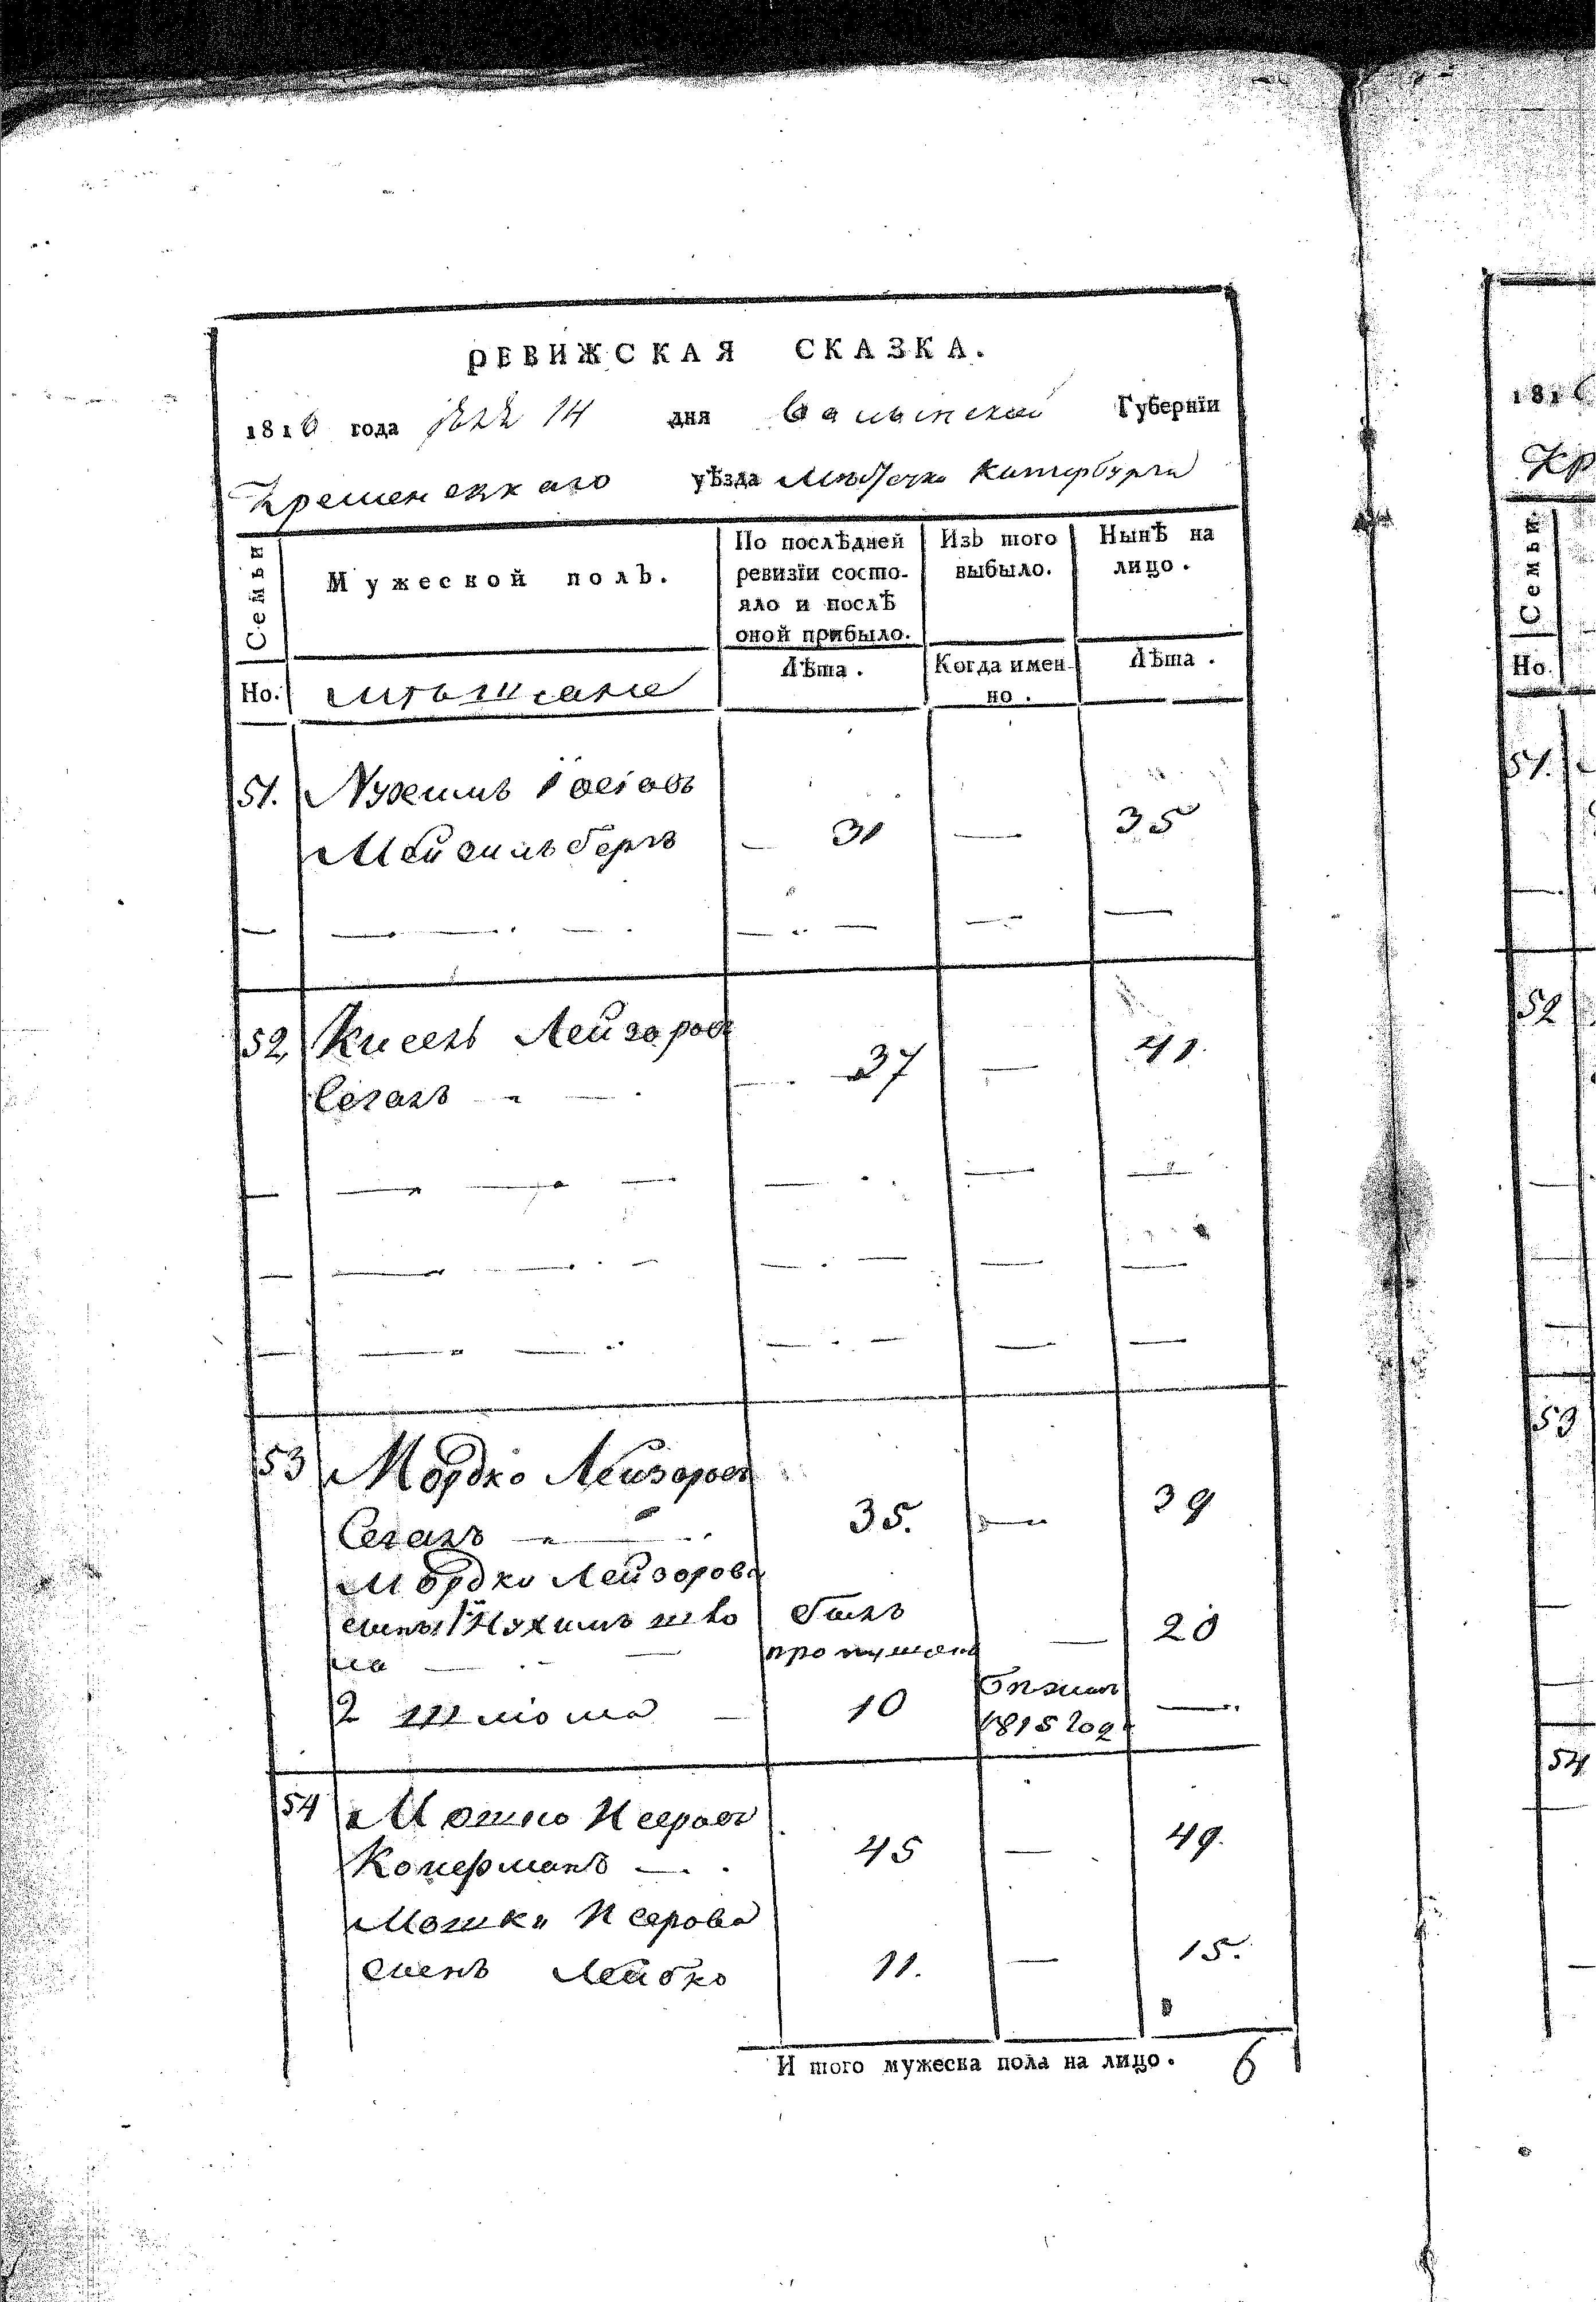 РЕВИЖСКАЯ СКАЗКА.
1816 года 14 дня Валынской Губернїи
Кременецкаго уѣзда Мѣстечка Катербурга
Семьи
Мужеской полъ.
По послѣдней ревизїи состояло и послѣ оной прибыло.
Изъ того выбыло.
Нынѣ на лицо.
Но.
мѣщане
Лѣта.
Когда имен-
но.
Лѣта.
51. Нухимъ
Мейзильбергъ — 31 — 35
52, Кисель Лейзоров
Сегалъ — 37 — 41.
53 Мордко Лейзоровъ
Сегалъ 35. — 39
Мордки Лейзорова
сыны 1й Нухимъ былъ — 20
пропущенъ
2 Шліома — 10 бѣжалъ —
1815 год
54 Мошко Исеровъ
Коперманъ — 45 — 49.
Мошки Исерова
сынъ Лейбко 11. — 15.
И того мужеска пола на лицо. 6
1816
Кр
Семьи
Но.
51.
52
53
54